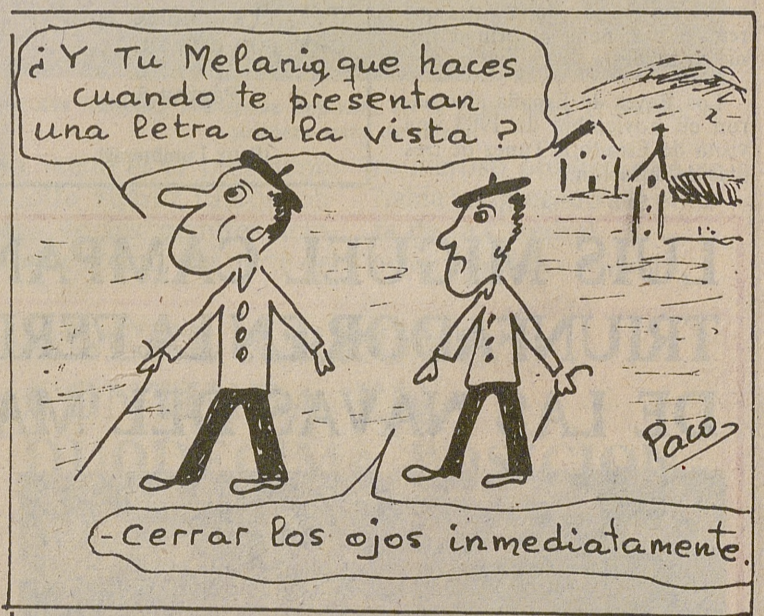 ¿Y Tu Melanio, que haces
cuando te presentan
una letra a la vista?
Paco
-cerrar los ojos inmediatamente.